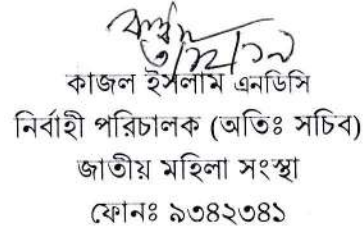 কাজল ইসলাম এনডিসি
নির্বাহী পরিচালক (অতিঃ সচিব)
জাতীয় মহিলা সংস্থা
ফোনঃ ৯৩৪২৩৪১